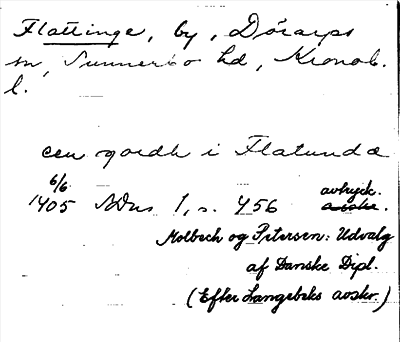 Flattinge, by, Dörarps
sn, Sunnerbo hd, Kronob.
l.
een gordh i Flatundæ
6/6
1405 NDns 1, s. 456 avtryck.
avskr.
Molbech og Petersen: Udvalg
af Danske Dipl.
(Efter Langebeks avskr.)